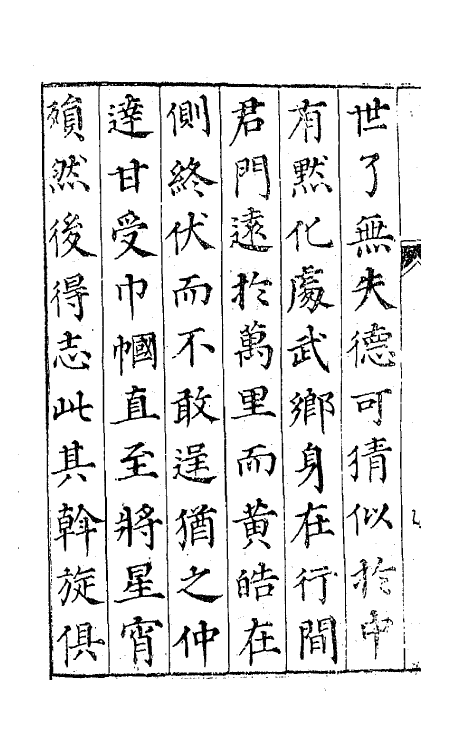 世了無失德可猜似於中
有黙化處武鄉身在行間
君門遠於萬里而黃皓在
側終伏而不敢逞猶之仲
達甘受巾幗直至將星宵
殞然後得志此其斡旋俱